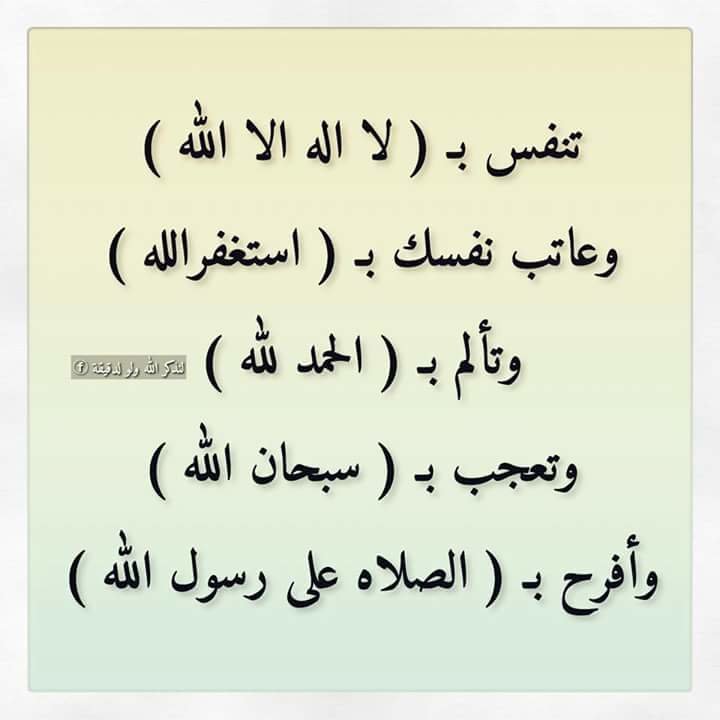 تنفس بـ ( لا اله الا الله )
وعاتب نفسك بـ ( استغفرالله )
وتألم بـ ( الحمد لله )
لنذكر الله ولو لدقيقة f
وتعجب بـ ( سبحان الله )
وأفرح بـ ( الصلاه على رسول الله )